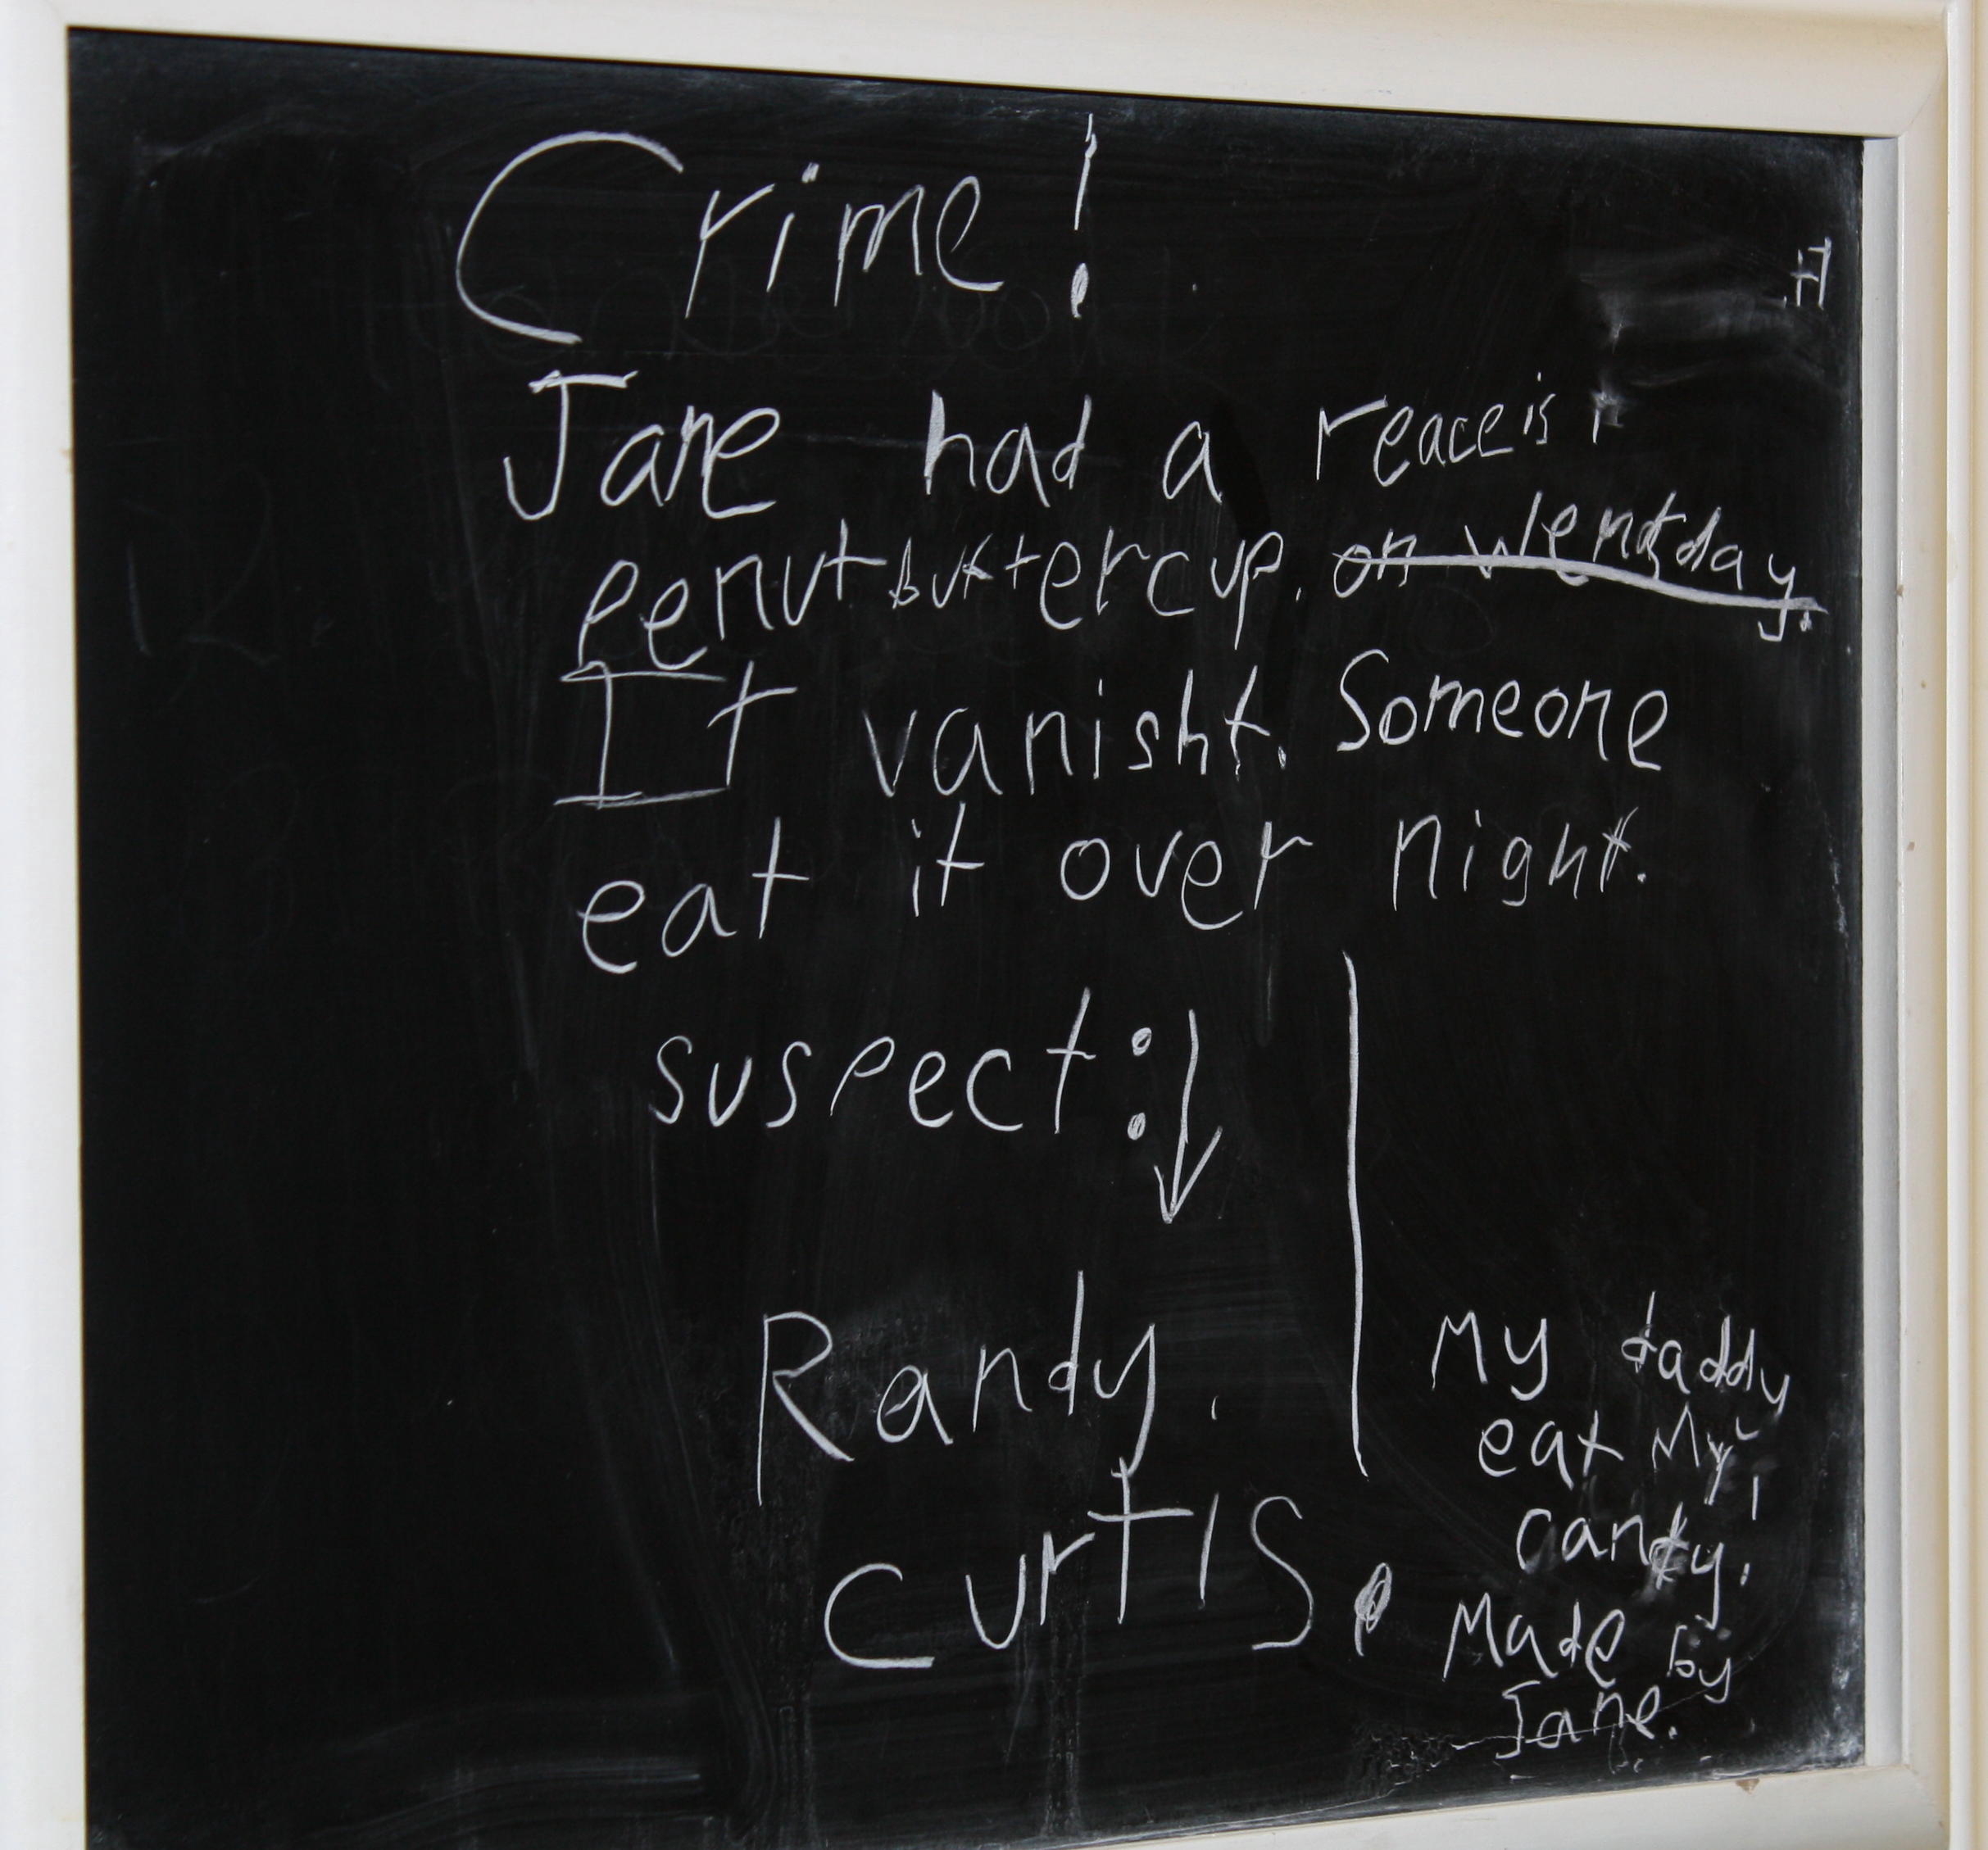 Crime!
Jane had a reaceis
penut buttercup. on wendsday.
It vanisht. Someone
eat it over night.
suspect:↓
Randy.
Curtis.
My daddy
eat My
candy.
Made by
Jane.